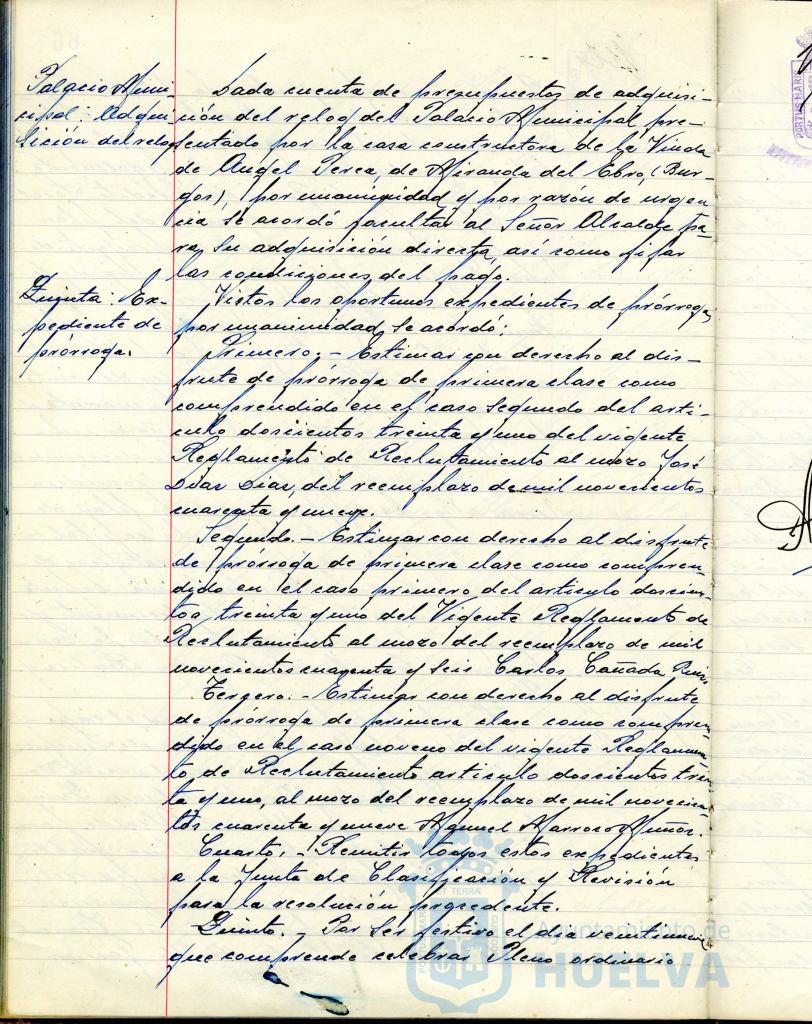 Palacio Muni-
cipal: Adqui-
sición del reloj
Dada cuenta de presupuestos de adquisi-
ción del reloj del Palacio Municipal, pre-
sentado por la casa constructora de la Viuda
de Angel Perea, de Miranda del Ebro, (Bur-
gos), por unanimidad y por razón de urgen
cia se acordó facultar al Señor Alcalde pa-
ra, su adquisición directa, así como fijar
las condiciones del pago.
Quinta: Ex-
pediente de
prórroga.
Vistos los oportunos expedientes de prórroga,
por unanimidad, se acordó:
Primero.- Estimar con derecho al dis-
frute de prórroga de primera clase como
comprendido en el caso segundo del artí-
culo doscientos treinta y uno del vigente
Reglamento de Reclutamiento al mozo José
Díaz Díaz, del reemplazo de mil novecientos
cuarenta y nueve.
Segundo.- Estimar con derecho al disfrute
de prórroga de primera clase como compren-
dido en el caso primero del articulo doscien-
tos treinta y uno del Vigente Reglamento de
Reclutamiento al mozo del reemplazo de mil
novecientos cuarenta y seis Carlos Cañada Ruiz.
Tercero.- Estimar con derecho al disfrute
de prórroga de primera clase como compren-
dido en el caso noveno del vigente Reglamen-
to de Reclutamiento articulo doscientos trein-
ta y uno, al mozo del reemplazo de mil novecien-
tos cuarenta y nueve Muñoz.
Cuarto.- Remitir todos estos expedientes
a la Junta de Clasificación y Revisión
para la resolución procedente.
Quinto.- Por ser festivo el día
que comprende celebrar Pleno ordinario
Ayuntamiento de
HUELVA